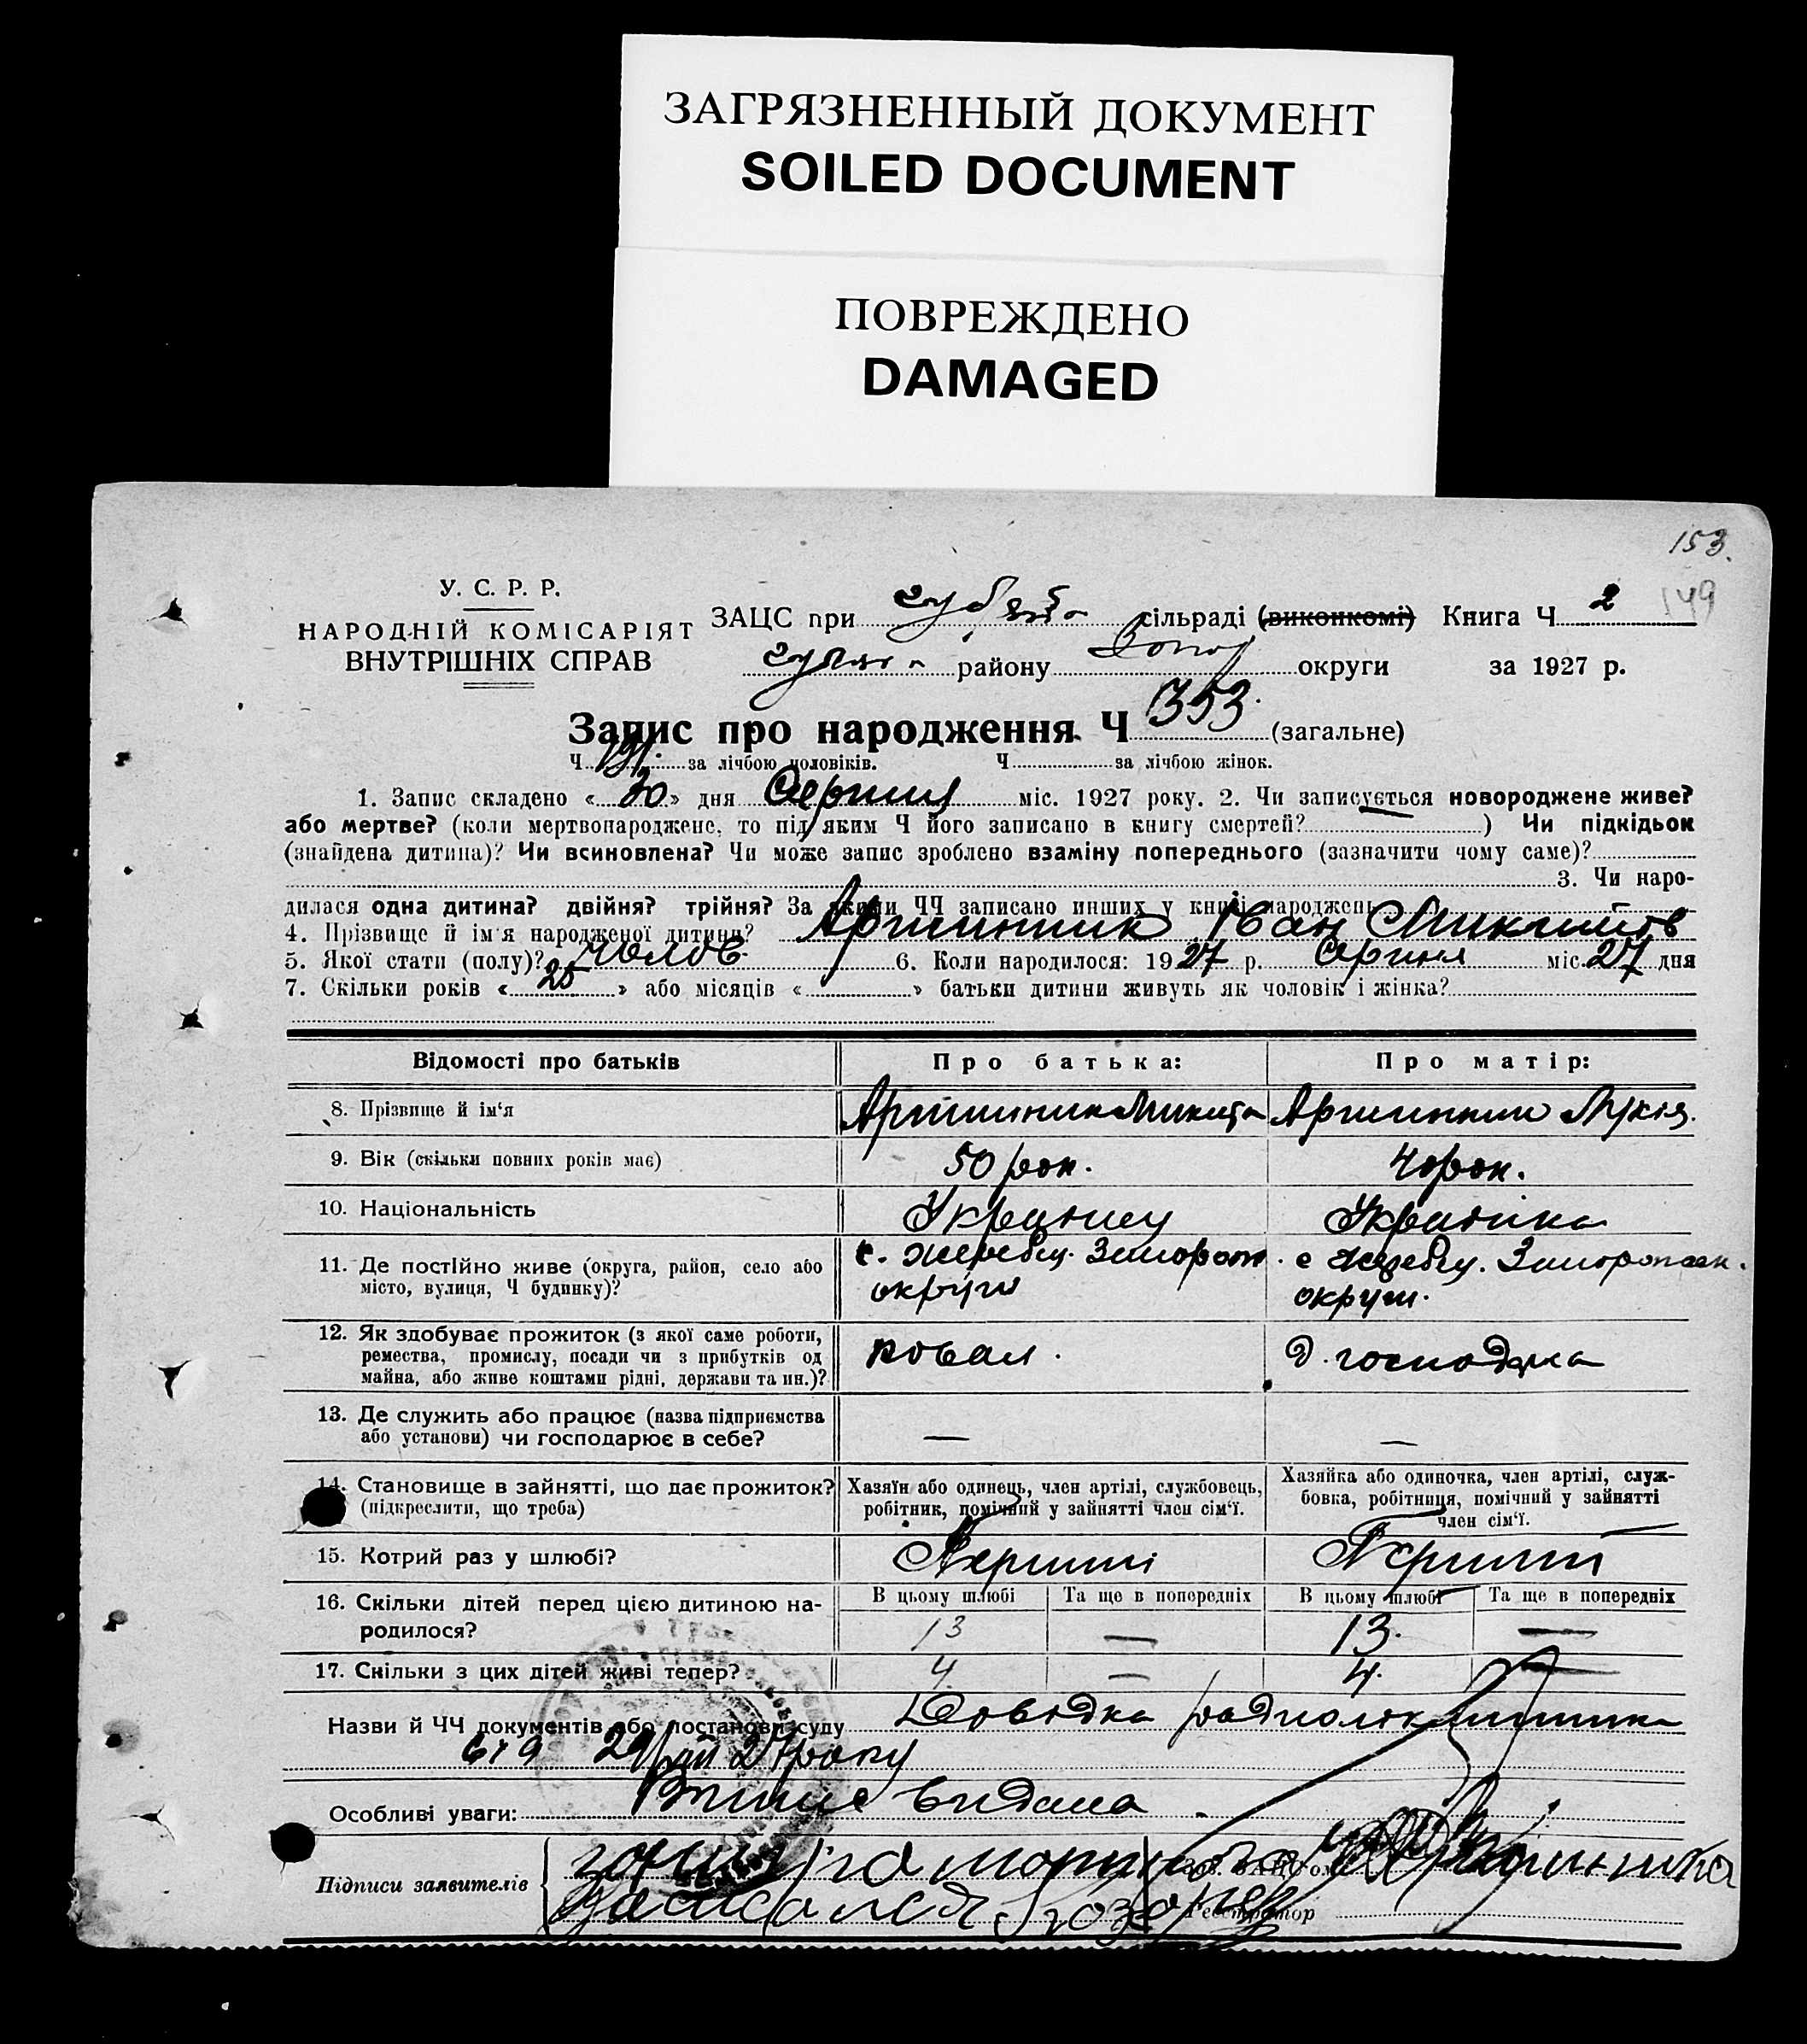 ЗАГРЯЗНЕННЫЙ ДОКУМЕНТ
SOILED DOCUMENT
ПОВРЕЖДЕНО
DAMAGED
153.
149
У. С. Р. Р.
НАРОДНІЙ КОМІСАРІЯТ
ВНУТРІШНІХ СПРАВ
ЗАЦС при сільраді (виконкомі) Книга Ч 2
району Запор округи за 1927 р.
Запис про народження Ч 353. (загальне)
Ч 191. за лічбою чоловіків. Ч за лічбою жінок.
1. Запис складено « 30 » дня Серпня міс. 1927 року. 2. Чи записується новороджене живе?
або мертве? (коли мертвонароджене, то під яким Ч його записано в книгу смертей? ) Чи підкідьок
(знайдена дитина)? Чи всиновлена? Чи може запис зроблено взаміну попереднього (зазначити чому саме)?
3. Чи наро-
дилася одна дитина? двійня? трійня? За якими ЧЧ записано инших у книзі народжень
4. Прізвище й ім'я народженої дитини? Іван
5. Якої стати (полу)? чолов. 6. Коли народилося: 1927 р. Серпня міс. 27 дня
7. Скільки років « 25 » або місяців « » батьки дитини живуть як чоловік і жінка?
Відомості про батьків Про батька: Про матір:
8. Прізвище й ім'я Микита
9. Вік (скільки повних років має) 50 рок. 40 рок.
10. Національність Українец Українка
11. Де постійно живе (округа, район, село або
місто, вулиця, Ч будинку)?
с. Жеребец. Запорож. с Жеребец. Запорожск.
округи округи.
12. Як здобуває прожиток (з якої саме роботи,
ремества, промислу, посади чи з прибутків од
майна, або живе коштами рідні, держави та ин.)?
ковал. д. господарка
13. Де служить або працює (назва підприємства
або установи) чи господарює в себе?
— —
14. Становище в зайнятті, що дає прожиток?
(підкреслити, що треба)
Хазяїн або одинець, член артілі, службовець,
робітник, помічний у зайнятті член сім'ї.
Хазяйка або одиночка, член артілі, служ-
бовка, робітниця, помічний у зайнятті
член сім'ї.
15. Котрий раз у шлюбі? Перший Перший
16. Скільки дітей перед цією дитиною на-
родилося?
В цьому шлюбі Та ще в попередніх В цьому шлюбі Та ще в попередніх
13 — 13. —
17. Скільки з цих дітей живі тепер? 4 — 4. —
Назви й ЧЧ документів або постанови суду Довідка
27 року
Особливі уваги: видана
Підписи заявителів
Реєстратор